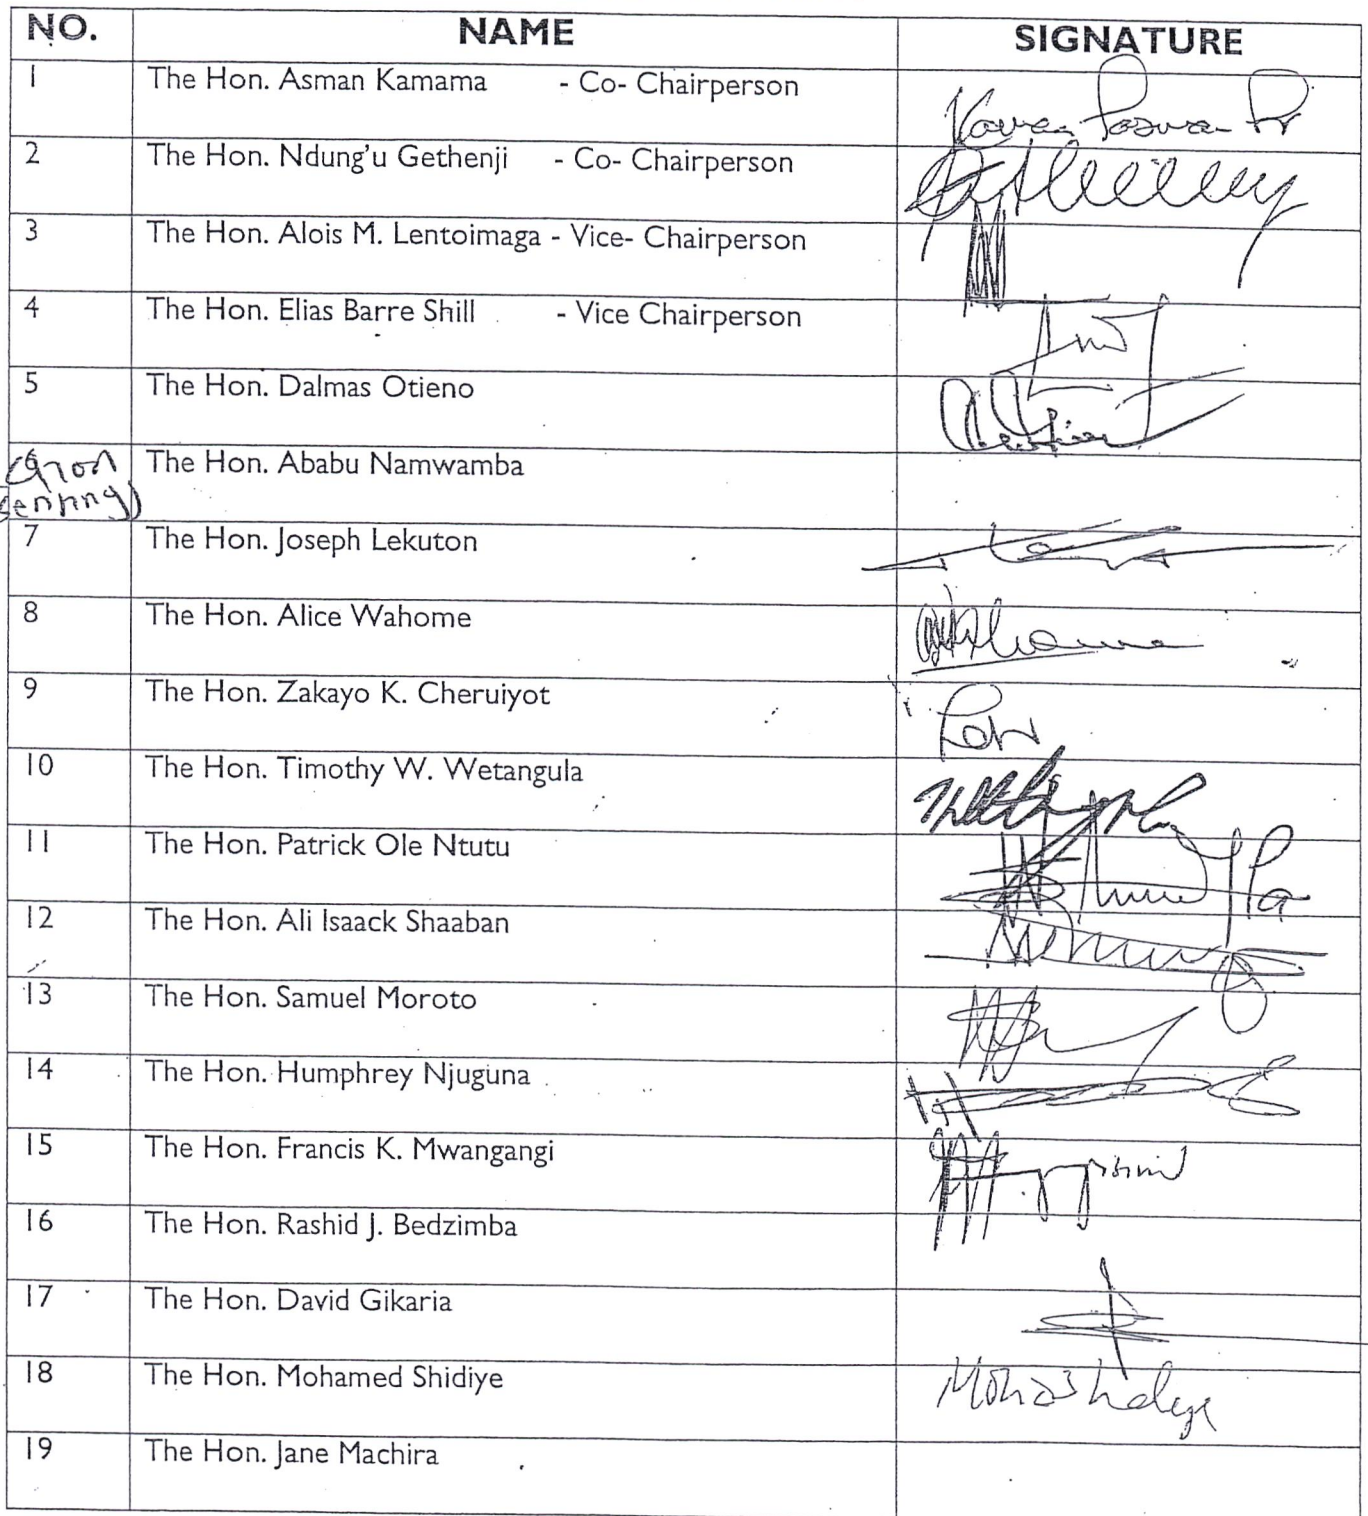 NO. NAME SIGNATURE
1 The Hon. Asman Kamama - Co- Chairperson
2 The Hon. Ndung'u Gethenji - Co- Chairperson
3 The Hon. Alois M. Lentoimaga - Vice- Chairperson
4 The Hon. Elias Barre Shill - Vice Chairperson
5 The Hon. Dalmas Otieno
6 The Hon. Ababu Namwamba
7 The Hon. Joseph Lekuton
8 The Hon. Alice Wahome
9 The Hon. Zakayo K. Cheruiyot
10 The Hon. Timothy W. Wetangula
11 The Hon. Patrick Ole Ntutu
12 The Hon. Ali Isaack Shaaban
13 The Hon. Samuel Moroto
14 The Hon. Humphrey Njuguna
15 The Hon. Francis K. Mwangangi
16 The Hon. Rashid J. Bedzimba
17 The Hon. David Gikaria
18 The Hon. Mohamed Shidiye
19 The Hon. Jane Machira